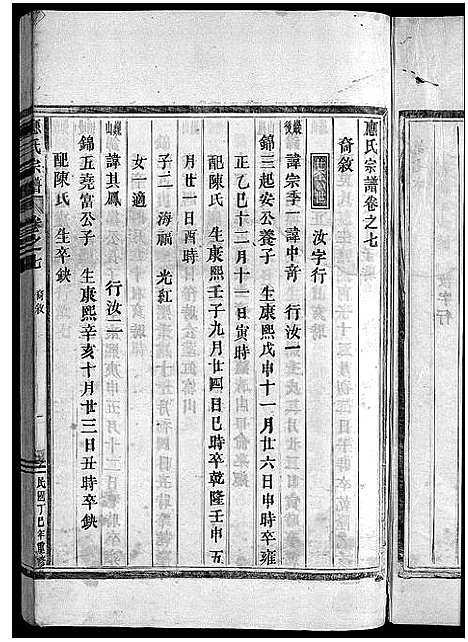 應氏宗譜卷之七
裔敘
汝字行
巖後
諱宗季一諱中奇 行汝一
錦三起安公養子 生康熙戊申十一月廿六日申時卒雍
正乙巳十二月十一日寅時
配陳氏 生康熙壬子九月廿四日巳時卒乾隆壬申五
月廿一日酉時
子二 海福 光紅
女一適
諱其鳳 行汝二
錦五堯富公子 生康熙辛亥十月廿三日丑時卒缺
配陳氏 生卒缺
應氏宗譜
卷之七
裔敘
一
民國丁巳年重修